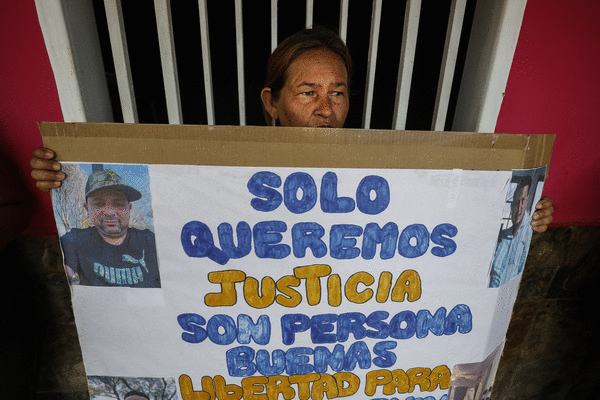 SOLO
QUEREMOS
JUSTICIA
SON PERSONA
BUENAS
LIBERTAD PARA